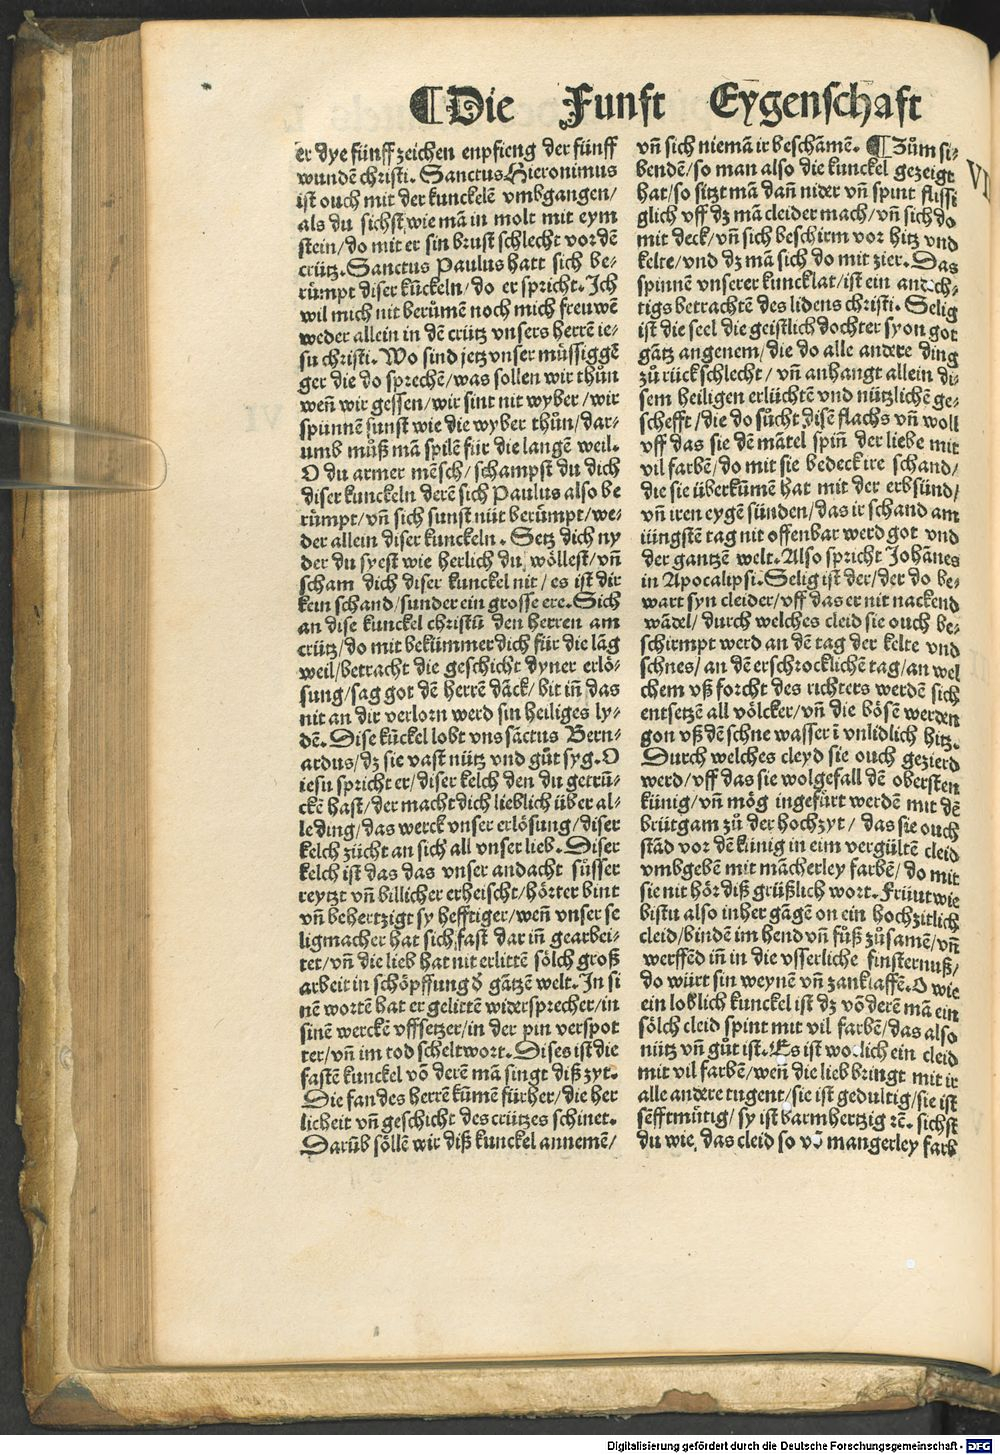 ¶Die Funft Eygenschaft
er dye fünff zeichen enpfieng der fünff
wundē christi. Sanctus Hieronimus
ist ouch mit der kunckelē vmbgangen/
als du sichst wie mā in molt mit eym
stein/do mit er sin brust schlecht vor dē
crütz. Sanctus Paulus hatt sich be-
rümpt diser kückeln/do er spricht. Ich
wil mich nit berümē noch mich freuwē
weder allein in dē crütz vnsers herrē ie-
su christi. Wo sind jetz vnser müssiggē
ger die do sprechē/was sollen wir thůn
weñ wir gessen/wir sint nit wyber/wir
spünnē sunst wie die wyber thůn/dar-
umb můß mā spilē für die langē weil.
O du armer mēsch/schampst du dich
diser kunckeln derē sich Paulus also be
rümpt/vñ sich sunst nüt berümpt/we-
der allein diser kunckeln. Setz dich ny
der du syest wie herlich du wöllest/vñ
scham dich diser kunckel nit/es ist dir
kein schand/sunder ein grosse ere. Sich
an dise kunckel christū den herren am
crütz/do mit bekümmer dich für die lāg
weil/betracht die geschicht dyner erlö-
sung/sag got dē herrē dāck/bit iñ das
nit an dir verlorn werd sin heiliges ly-
dē. Dise kückel lobt vns sāctus Bern-
ardus/dz sie vast nütz vnd gůt syg. O
iesu spricht er/diser kelch den du getrū-
ckē hast/der macht dich lieblich über al-
le ding/das werck vnser erlösung/diser
kelch zücht an sich all vnser lieb. Diser
kelch ist das das vnser andacht süsser
reytzt vñ billicher erheischt/hörter bint
vñ behertzigt sy hefftiger/weñ vnser se
ligmacher hat sich fast dar iñ gearbei-
tet/vñ die lieb hat nit erlittē sölch groß
arbeit in schöpffung d̄ gātzē welt. In si
nē wortē hat er gelittē widersprecher/in
sinē werckē vffsetzer/in der pin verspot
ter/vñ im tod scheltwort. Dises ist die
fastē kunckel vō derē mā singt diß zyt.
Die fan des herrē kūmē fürher/die her
licheit vñ geschicht des crützes schinet.
Darūb söllē wir diß kunckel annemē/
vñ sich niemā ir beschāmē. ¶Zům si-
bendē/so man also die kunckel gezeigt
hat/so sitzt mā dañ nider vñ spint flissi
glich vff dz mā cleider mach/vñ sich do
mit deck/vñ sich beschirm vor hitz vnd
kelte/vnd dz mā sich do mit zier. Das
spinnē vnserer kuncklat/ist ein andch-
tigs betrachtē des lidens christi. Selig
ist die seel die geistlich dochter syon got
gātz angenem/die do alle andere ding
zů rück schlecht/vñ anhangt allein di-
sem heiligen erlüchtē vnd nützlichē ge-
schefft/die do sůcht disē flachs vñ woll
vff das sie dē mātel spiñ der liebe mit
vil farbē/do mit sie bedeck ire schand/
die sie überkūmē hat mit der erbsünd/
vñ iren eygē sünden/das ir schand am
iüngstē tag nit offenbar werd got vnd
der gantzē welt. Also spricht Johānes
in Apocalipsi. Selig ist der/der do be-
wart syn cleider/vff das er nit nackend
wādel/durch welches cleid sie ouch be-
schirmpt werd an dē tag der kelte vnd
schnes/an dē erschrocklichē tag/an wel
chem vß forcht des richters werdē sich
entsetzē all völcker/vñ die bösē werden
gon vß dē schne wasser ī vnlidlich hitz.
Durch welches cleyd sie ouch gezierd
werd/vff das sie wolgefall dē obersten
künig/vñ mög ingefürt werdē mit dē
brütgam zů der hochzyt/das sie ouch
stād vor dē künig in eim vergültē cleid
vmbgebē mit mācherley farbē/do mit
sie nit hör diß grüßlich wort. Früut wie
bistu also inher gāgē on ein hochzitlich
cleid/bindē im hend vñ fůß zůsamē/vñ
werffēd iñ in die vsserliche finsternuß/
do würt sin weynē vñ zanklaffē. O wie
ein loblich kunckel ist dz vō derē mā ein
sölch cleid spint mit vil farbē/das also
nütz vñ gůt ist. Es ist wo lich ein cleid
mit vil farbē/weñ die lieb bringt mit ir
alle andere tugent/sie ist gedultig/sie ist
sēfftmütig/sy ist barmhertzig ꝛc. sichst
du wie das cleid so vō mangerley farb
VI
Digitalisierung gefördert durch die Deutsche Forschungsgemeinschaft - DFG